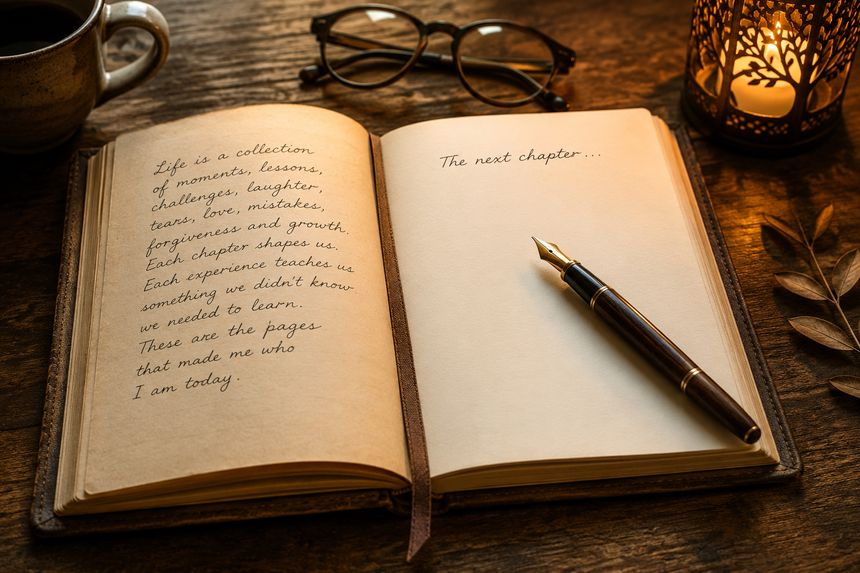 Life is a collection
of moments, lessons,
challenges, laughter,
tears, love, mistakes,
forgiveness and growth.
Each chapter shapes us.
Each experience teaches us
something we didn't know
we needed to learn.
These are the pages
that made me who
I am today.
The next chapter...